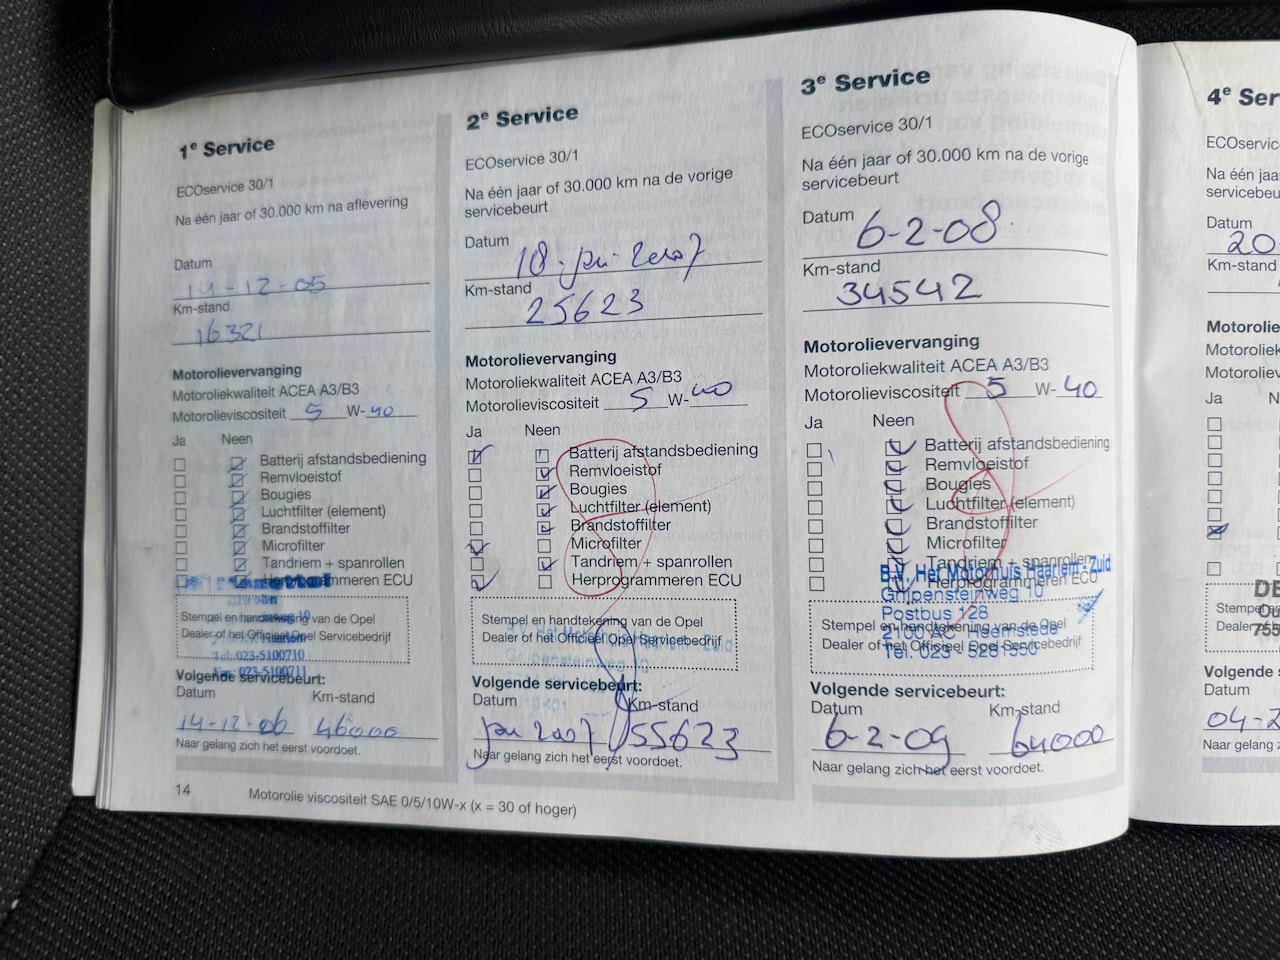 1e Service
ECOservice 30/1
Na één jaar of 30.000 km na aflevering
Datum
14-12-05
Km-stand
16321
Motorolievervanging
Motoroliekwaliteit ACEA A3/B3
Motorolieviscositeit 5 W-40
Ja Neen
Batterij afstandsbediening
Remvloeistof
Bougies
Luchtfilter (element)
Brandstoffilter
Microfilter
Tandriem + spanrollen
Herprogrammeren ECU
Stempel en handtekening van de Opel
Dealer of het Officieel Opel Servicebedrijf
Tel.:023-5100710
Fax:023-5100711
Volgende servicebeurt:
Datum Km-stand
14-12-06 46000
Naar gelang zich het eerst voordoet.
14
Motorolie viscositeit SAE 0/5/10W-x (x = 30 of hoger)
2e Service
ECOservice 30/1
Na één jaar of 30.000 km na de vorige
servicebeurt
Datum
18 - jan - 2007
Km-stand
25623
Motorolievervanging
Motoroliekwaliteit ACEA A3/B3
Motorolieviscositeit 5 W-40
Ja Neen
Batterij afstandsbediening
Remvloeistof
Bougies
Luchtfilter (element)
Brandstoffilter
Microfilter
Tandriem + spanrollen
Herprogrammeren ECU
Stempel en handtekening van de Opel
Dealer of het Officieel Opel Servicebedrijf
Volgende servicebeurt:
Datum Km-stand
jan 2007 55623
Naar gelang zich het eerst voordoet.
3e Service
ECOservice 30/1
Na één jaar of 30.000 km na de vorige
servicebeurt
Datum
6-2-08
Km-stand
34542
Motorolievervanging
Motoroliekwaliteit ACEA A3/B3
Motorolieviscositeit 5 W-40
Ja Neen
Batterij afstandsbediening
Remvloeistof
Bougies
Luchtfilter (element)
Brandstoffilter
Microfilter
Tandriem + spanrollen
Herprogrammeren ECU
B.V. Het Motorhuis Haarlem - Zuid
Grijpensteinweg 10
Postbus 128
2100 AC Heemstede
Tel. 023 - 5281550
Stempel en handtekening van de Opel
Dealer of het Officieel Opel Servicebedrijf
Volgende servicebeurt:
Datum Km-stand
6-2-09 64000
Naar gelang zich het eerst voordoet.
4e Ser
ECOservic
Na één jaar
servicebeurt
Datum
20
Km-stand
Motorolie
Motoroliek
Motoroliev
Ja N
DE
Stempel
Dealer of
755
Volgende
Datum
04-2
Naar gelang z